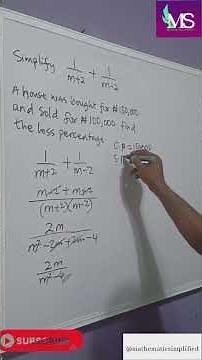 MS
Simplify 1/(m+2) + 1/(m-2)
A house was bought for ₦150,000
and sold for ₦100,000 find
the loss percentage
C.P = 150000
S.P
1/(m+2) + 1/(m-2)
(m-2 + m+2)/((m+2)(m-2))
2m/(m²-2m+2m-4)
2m/(m²-4)
SUBSCRIBE
@mathematicsimplified